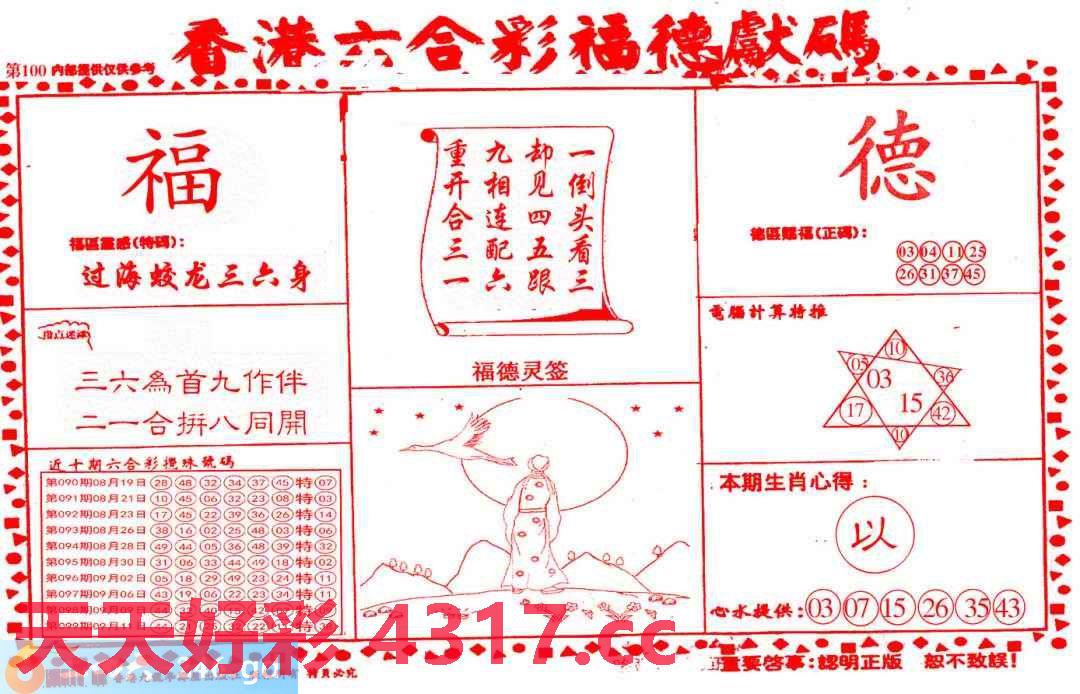 香港六合彩福德獻碼
第100 内部提供仅供参考
福
福區靈感(特碼):
过海蛟龙三六身
指点迷津
三六為首九作伴
二一合拼八同開
近十期六合彩攪珠號碼
第090期08月19日 28 48 32 34 37 45 特 07
第091期08月21日 10 45 06 32 23 08 特 03
第092期08月23日 17 45 22 39 36 26 特 14
第093期08月26日 38 16 02 25 48 03 特 06
第094期08月28日 49 44 05 36 48 39 特 32
第095期08月30日 31 06 33 44 49 18 特 02
第096期09月02日 05 18 29 49 23 24 特 11
第097期09月06日 43 19 06 22 23 34 特 11
第098期09月09日
第099期09月11日
一倒头看三
却见四五跟
九相连配六
重开合三一
福德灵签
德
德區賜福(正碼):
03 04 11 25
26 31 37 45
電腦計算特推
10
05 03 36
17 15 42
10
本期生肖心得:
以
心水提供:03 07 15 26 35 43
天天好彩 4317.cc
重要啓事:認明正版 恕不致誤!